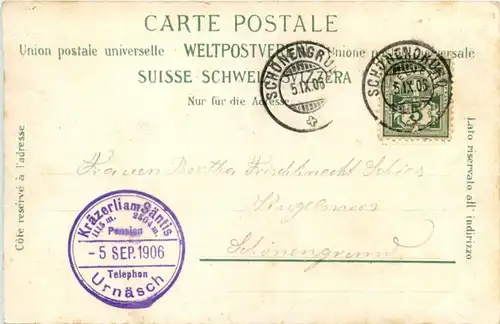 CARTE POSTALE
Union postale universelle WELTPOSTVER Unione postale universale
SUISSE SCHWEIZ SVIZZERA
Nur für die Adresse
SCHÖNENGRUND
5.IX.06
SCHÖNENGRUND
5.IX.06
5
Côté réservé à l'adresse
Lato riservato all' indirizzo
Frauen Bertha Frischknecht
Schönengrund
Kräzerli am Säntis
1115 m. 2504 m.
Pension
- 5 SEP. 1906
Telephon
Urnäsch